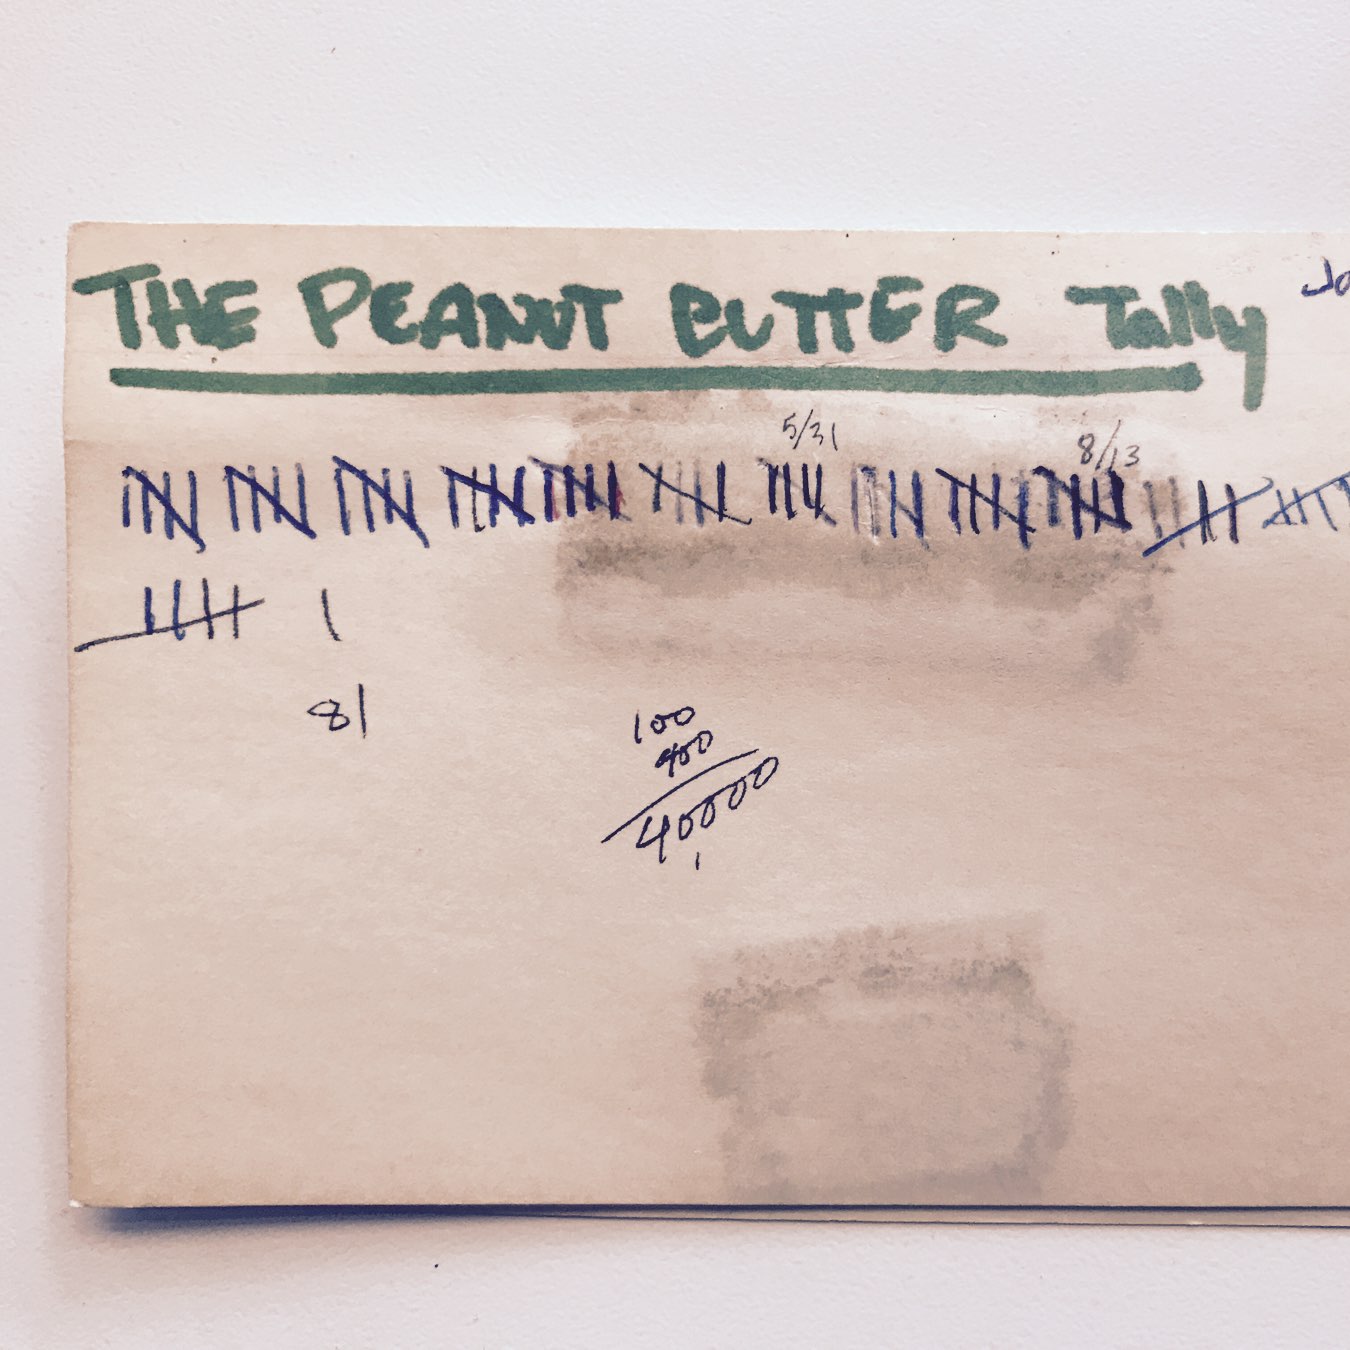 THE PEANUT BUTTER Tally
5/31 8/13
81
100
400
40000